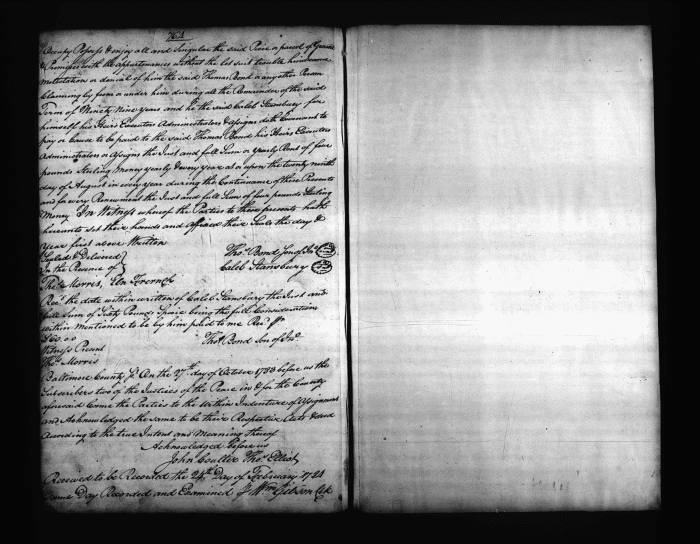 764
Occupy Possess & enjoy all and Singular the said Piece or parcel of Ground
& Premises with the appurtenances without the let suit trouble hinderance
Molestation or denial of him the said Thomas Bond or any other Person
Claiming by from or under him during all the Remainder of the said
Term of Ninety Nine years and he the said Caleb Stansbury for
himself his Heirs Executors Administrators & Assigns doth Covenant to
pay or Cause to be paid to the said Thomas Bond his Heirs Executors
Administrators or Assigns the Just and full Sum or Yearly Rent of four
pounds Sterling Money yearly & every year at or upon the twenty ninth
day of August in every year during the Continuance of these Presents
and for every Renewment the Just and full Sum of four pounds Sterling
Money In Witness whereof the Parties to these presents have
hereunto set their hands and affixed their Seals the day &
Year first above Written
Sealed & Delivered
In the Presence of
Thos. Bond Son of Jno.
Caleb Stansbury
Thos. Morris,
Recd. the date within written of Caleb Stansbury the Just and
full Sum of Sixty Pounds Specie being the full Consideration
within Mentioned to be by him paid to me Recd. pr.
£60.0.0
Thos. Bond Son of Jno.
Witness Present
Thos. Morris
Baltimore County Sc. On the 27th day of October 1783 before us the
Subscribers two of the Justices of the Peace in & for the County
aforesaid Come the Parties to the within Indenture of Assignment
and Acknowledged the same to be their Respective Act & deed
According to the true Intent and Meaning thereof
Acknowledged before us
John Coulter Thos. Elliot
Received to be Recorded the 24th Day of February 1784
Same Day Recorded and Examined pr Wm. Gibson Clk